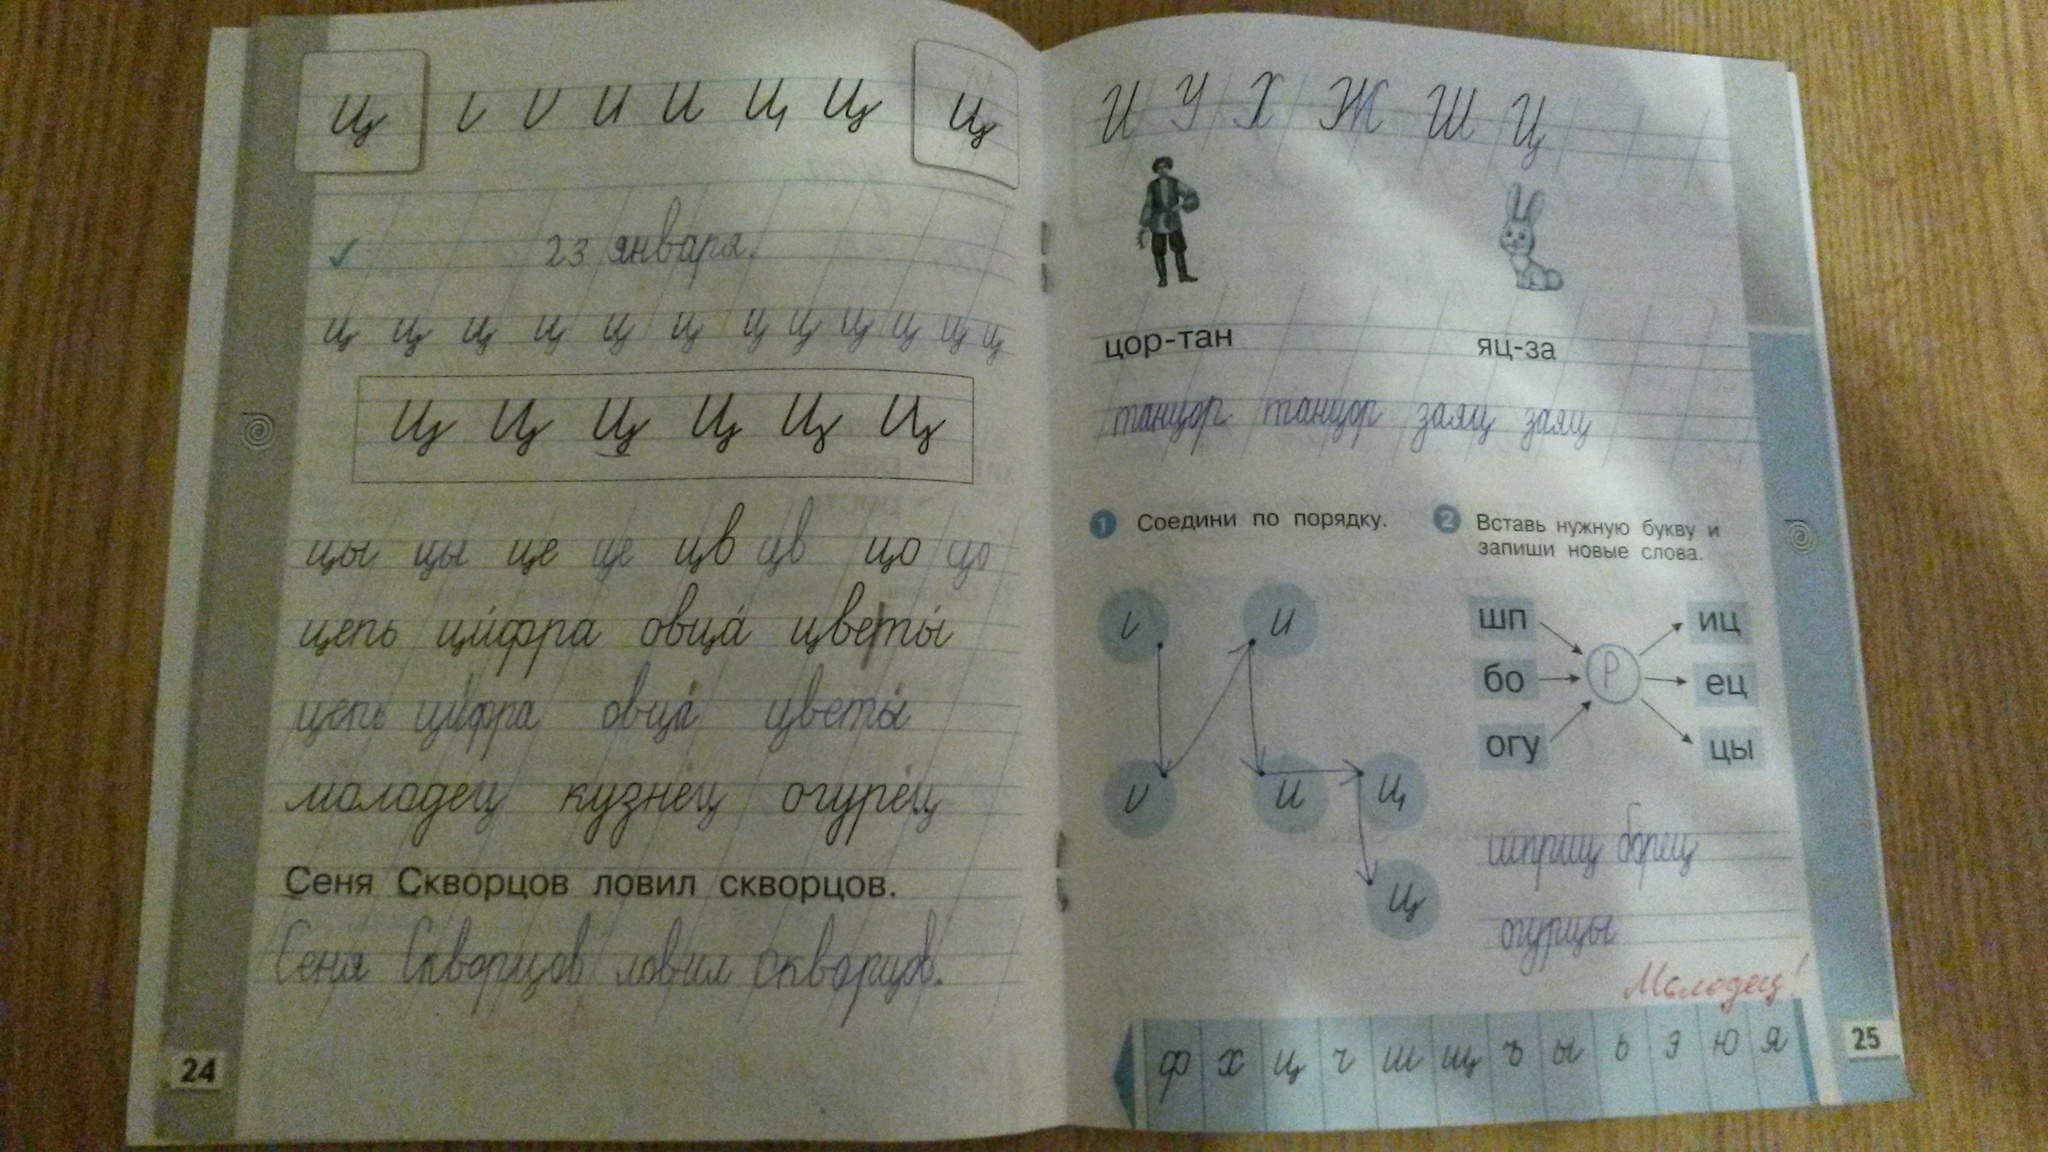 ц и и ц ц ц
23 января.
ц ц ц ц ц ц ц ц ц ц ц ц
Ц Ц Ц Ц Ц Ц
цы цы це це цв цв цо цо
цепь ци́фра овца́ цветы́
цепь ци́фра овца́ цветы́
молоде́ц кузне́ц огуре́ц
Сеня Скворцов ловил скворцов.
Сеня Скворцов ловил скворцов.
24
И У Х Ж Ш Ц
цор-тан яц-за
танцор танцор заяц заяц
1 Соедини по порядку.
и
и ц
ц
2 Вставь нужную букву и
запиши новые слова.
шп иц
бо Р ец
огу цы
шприц борец
огурцы
Молодец!
ф х ц ч ш щ ъ ы ь э ю я
25